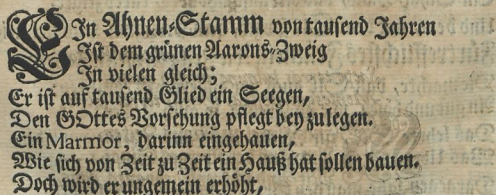 EIn Ahnen-Stamm von tausend Jahren
Ist dem grünen Aarons-Zweig
In vielen gleich;
Er ist auf tausend Glied ein Seegen,
Den GOttes Vorsehung pflegt bey zu legen.
Ein Marmor, darinn eingehauen,
Wie sich von Zeit zu Zeit ein Hauß hat sollen bauen.
Doch wird er ungemein erhöht,